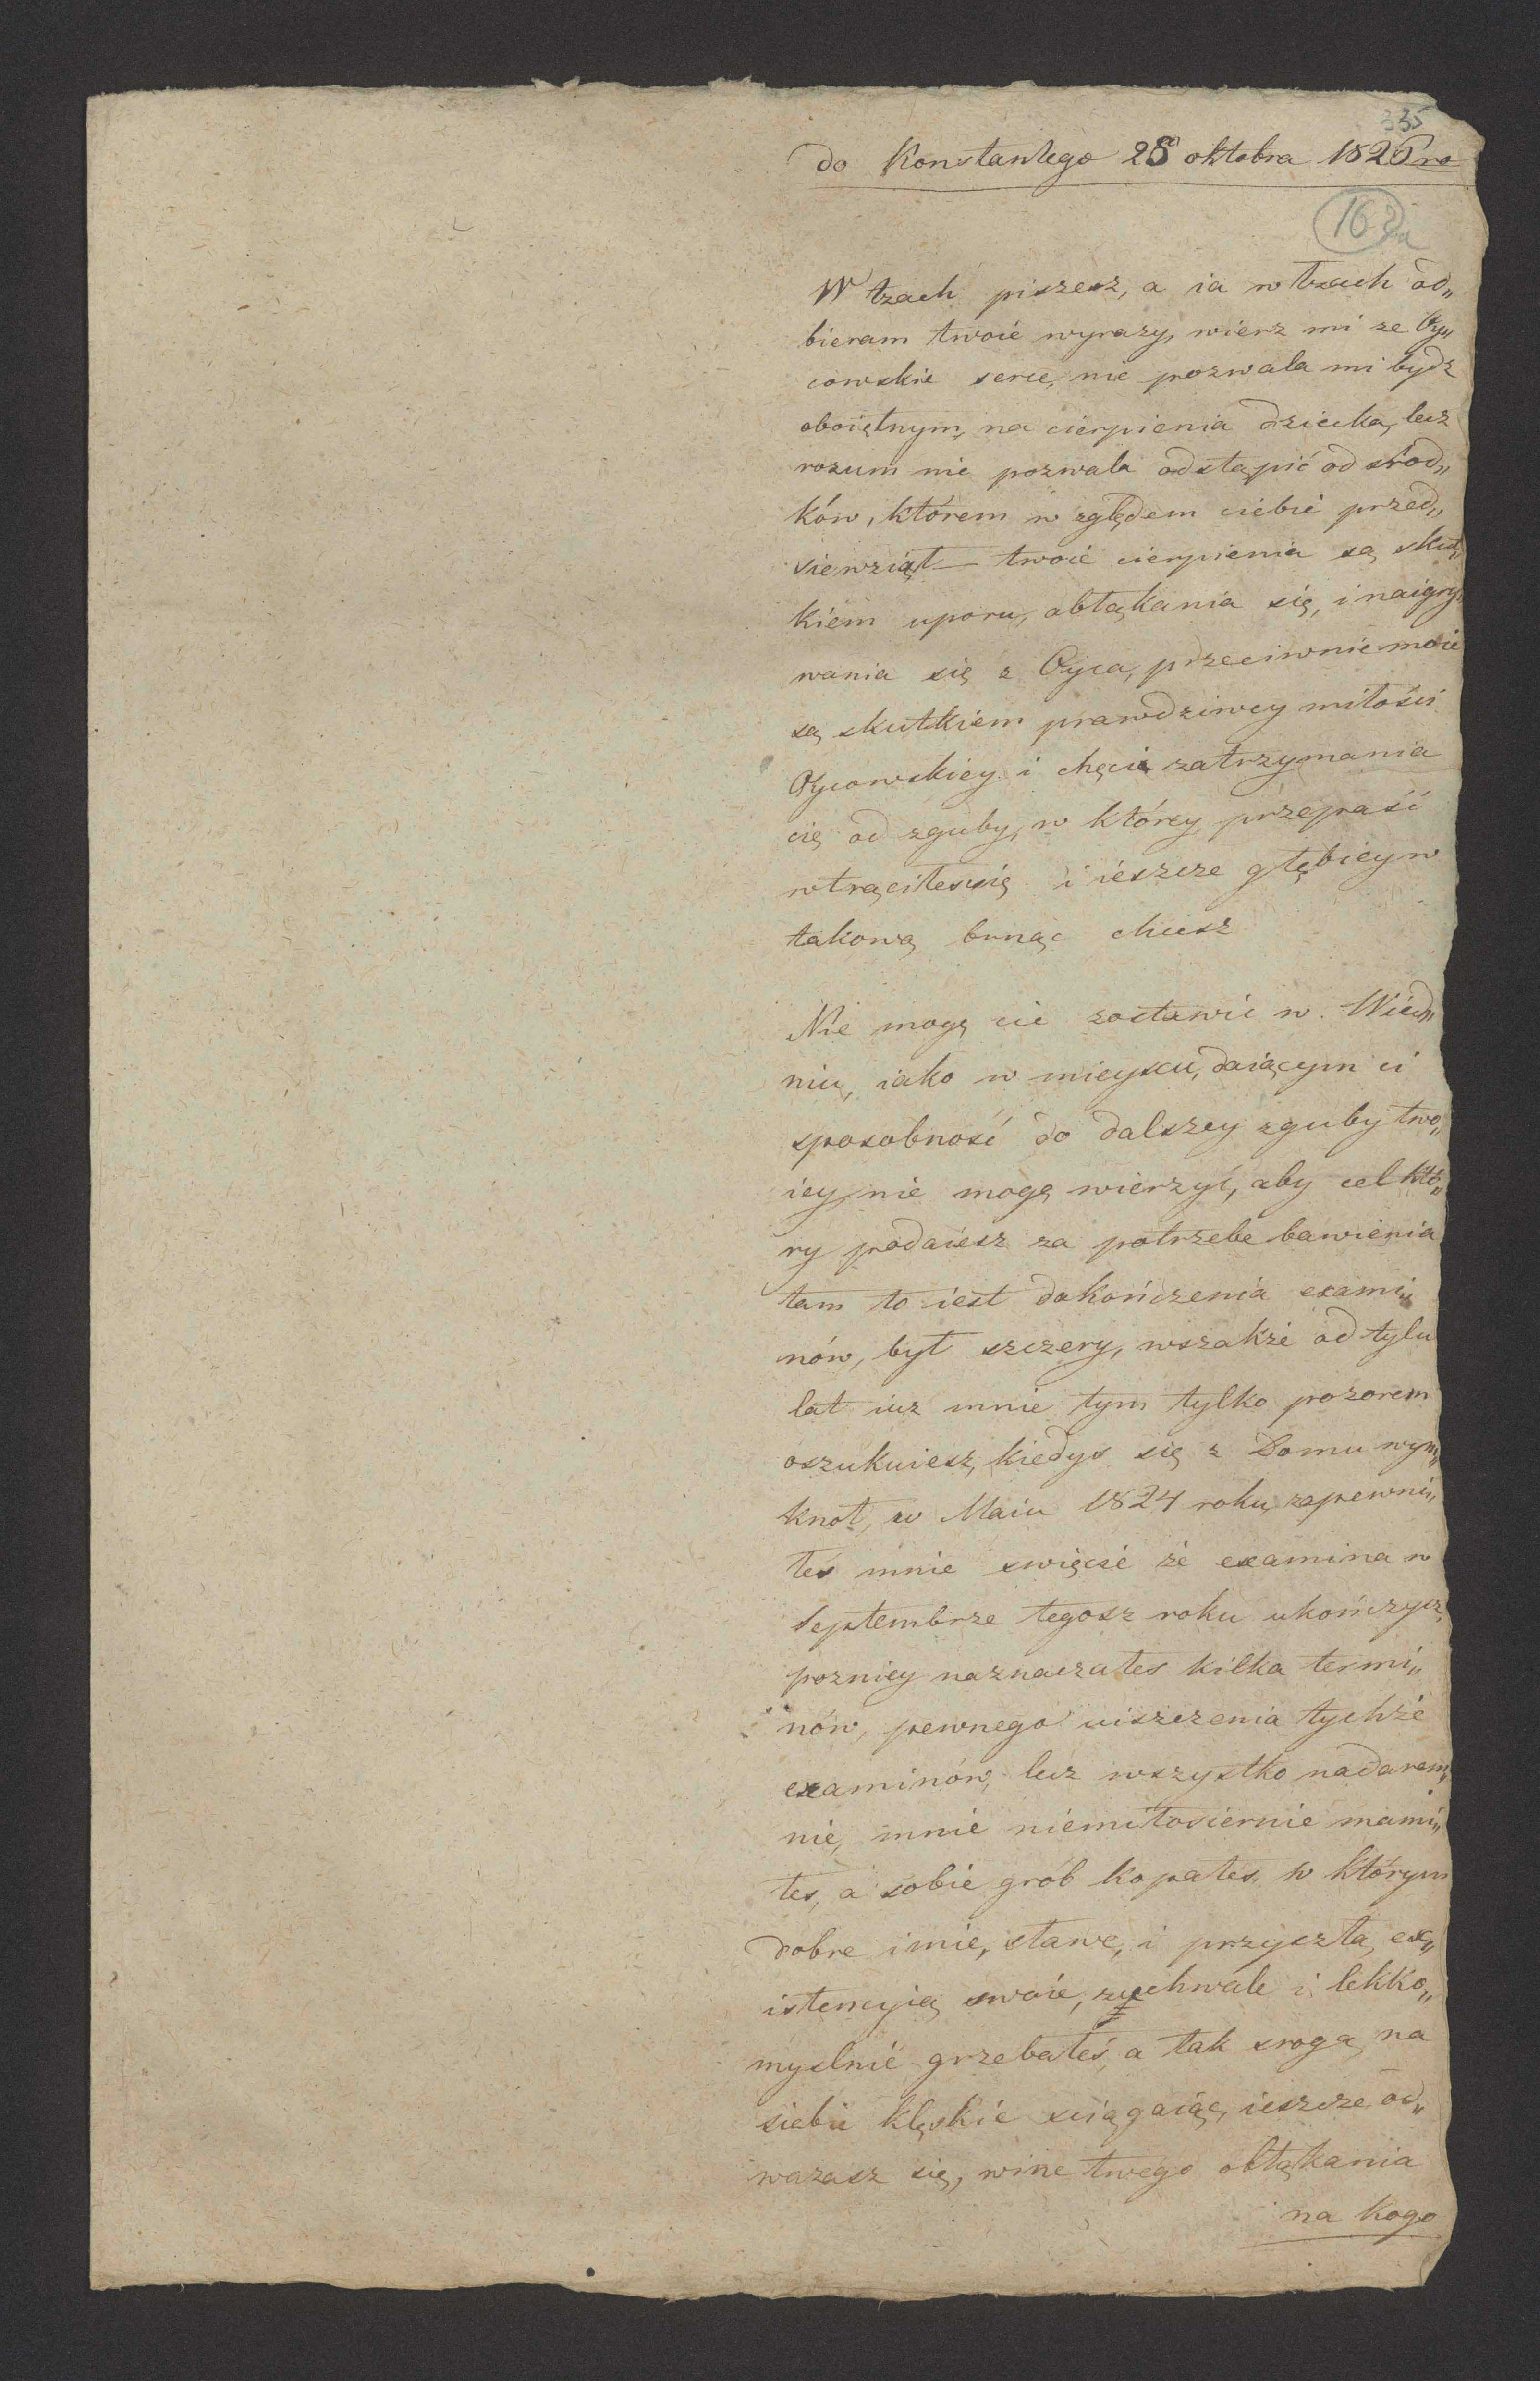 335
do Konstantego 25 oktobra 1826 ro
162a
W łzach piszesz, a ia w łzach od„
bieram twoie wyrazy, wierz mi ze Oy„
cowskie serce, nie pozwala mi bydz
oboiętnym, na cierpienia dziecka, lecz
rozum nie pozwala odstąpić od srod„
ków, którem w zględem ciebie przed„
siewziął — twoie cierpienia są skut„
kiem uporu, obłąkania się, i naigry„
wania się z Oyca, przeciwnie moie
są skutkiem prawdziwey miłości
Oycowskiey i chęcią zatrzymania
cię od zguby, w którey przepaść
wtrąciłeś się i ieszcze głębiey w
takową brnąc chcesz
Nie mogę cie zostawić w. Wied„
niu, iako w mieyscu, daiącym ci
sposobność do dalszey zguby two„
iey, nie mogę wierzyć, aby cel któ„
ry podaiesz za potrzebe bawienia
tam to iest dokończenia exami„
nów, był szczery, wszakże od tylu
lat iuz mnie tym tylko pozorem
oszukuiesz, kiedys się z Domu wym„
knoł, w Maiu 1824 roku, zapewni„
łes mnie swięcie że examina w
Septembrze tegosz roku ukończysz,
pozniey naznaczałes kilka termi„
nów, pewnego uiszczenia tychże
examinów, lecz wszystko nadarem„
nie, mnie niemiłosiernie mami„
łes, a sobie grób kopałes, w którym
dobre imie, sławe, i przyszłą ex„
istencyią swoie, zuchwale i lekko„
myslnie grzebałeś, a tak srogą na
siebie klęskie sciągaiąc, ieszcze od„
wazasz się, wine twego obłąkania
na kogo